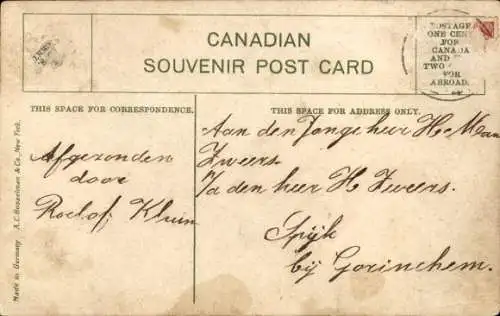 CANADIAN
SOUVENIR POST CARD
POSTAGE
ONE CENT
FOR
CANADA
AND
TWO
FOR
ABROAD.
THIS SPACE FOR CORRESPONDENCE.
THIS SPACE FOR ADDRESS ONLY.
Afgezonden
door
Roelof Kluin
Aan den Jonge heer H.
Zweers
Ja den heer H Zweers.
Spijk
bij Gorinchem.
Made in Germany A.C. Bosselman & Co., New York.